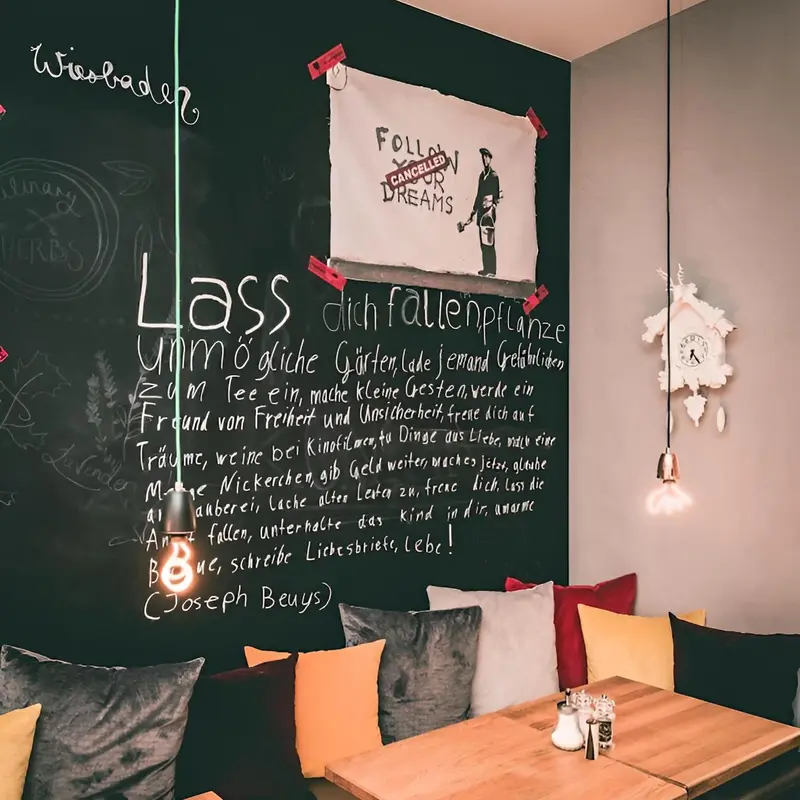 Wiesbaden
FOLLOW
YOUR
CANCELLED
DREAMS
HERBS
Lavendel
Lass dich fallen, pflanze
unmögliche Gärten, lade jemand Gefährlichen
zum Tee ein, mache kleine Gesten, werde ein
Freund von Freiheit und Unsicherheit, freue dich auf
Träume, weine bei Kinofilmen, tu Dinge aus Liebe, mach eine
Menge Nickerchen, gib Geld weiter, mach es jetzt, glaube
an Zauberei, lache alten Leuten zu, freue dich, lass die
Angst fallen, unterhalte das Kind in dir, umarme
Bäume, schreibe Liebesbriefe, lebe!
(Joseph Beuys)